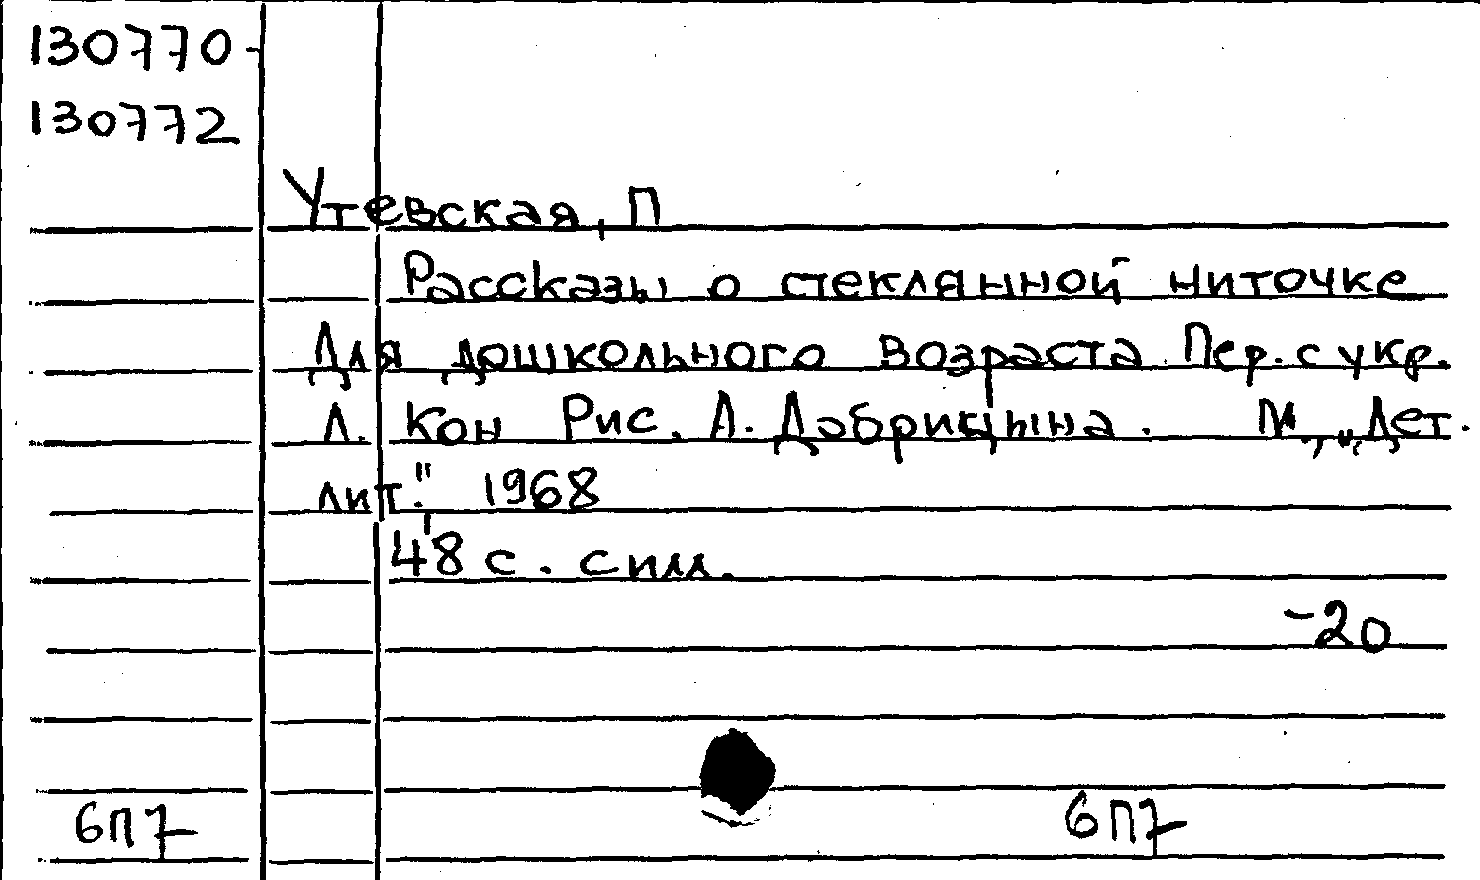 130770-
130772
Утевская, П
Рассказы о стеклянной ниточке
Для дошкольного возраста. Пер. с укр.
Л. Кон Рис. А. Добрицына. М., „Дет.
лит.", 1968
48 с. с илл.
-20
6П7
6П7